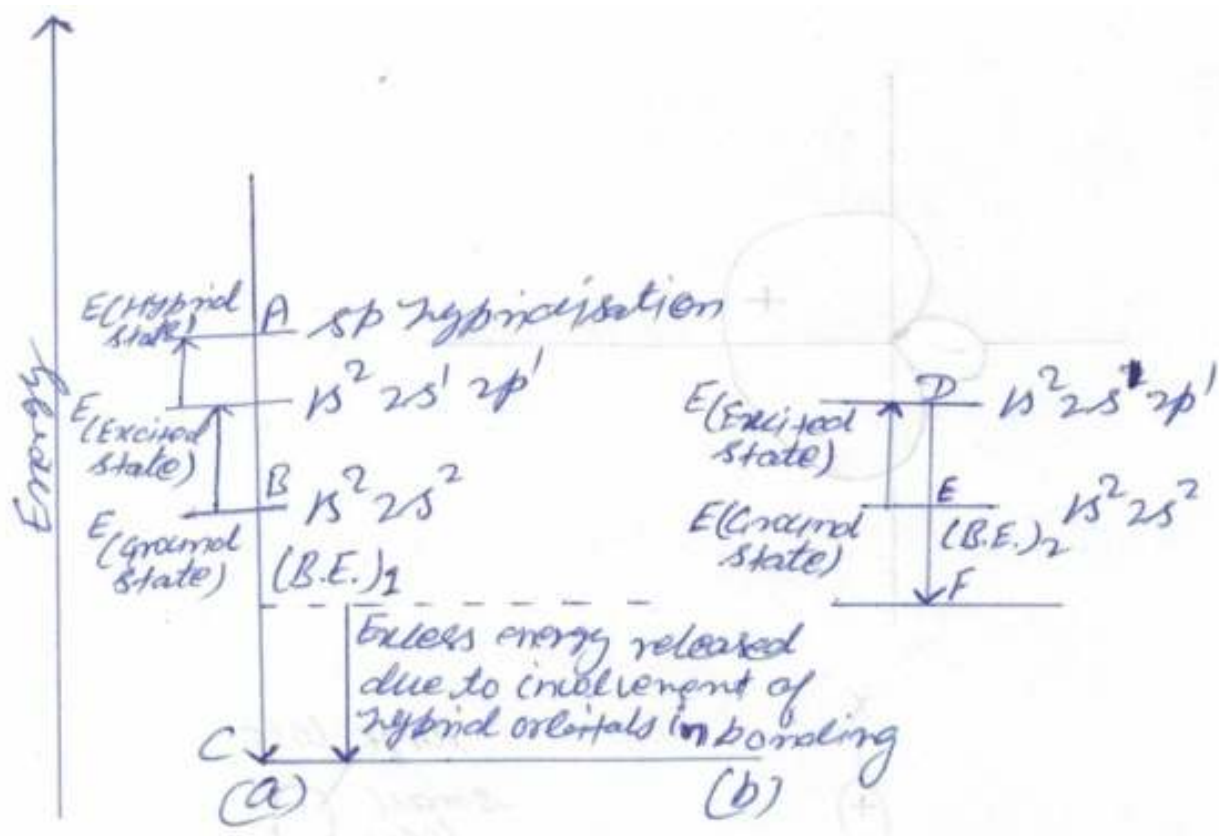 Energy
E(Hybrid
state)
A sp hybridisation
E
(Excited
state)
1s² 2s¹ 2p¹
B 1s² 2s²
E
(Ground
state)
(B.E.)1
Excess energy released
due to involvement of
hybrid orbitals in bonding
C
(a)
E(Excited
state)
D 1s² 2s¹ 2p¹
E(Ground
state)
E 1s² 2s²
(B.E.)2
F
(b)
+